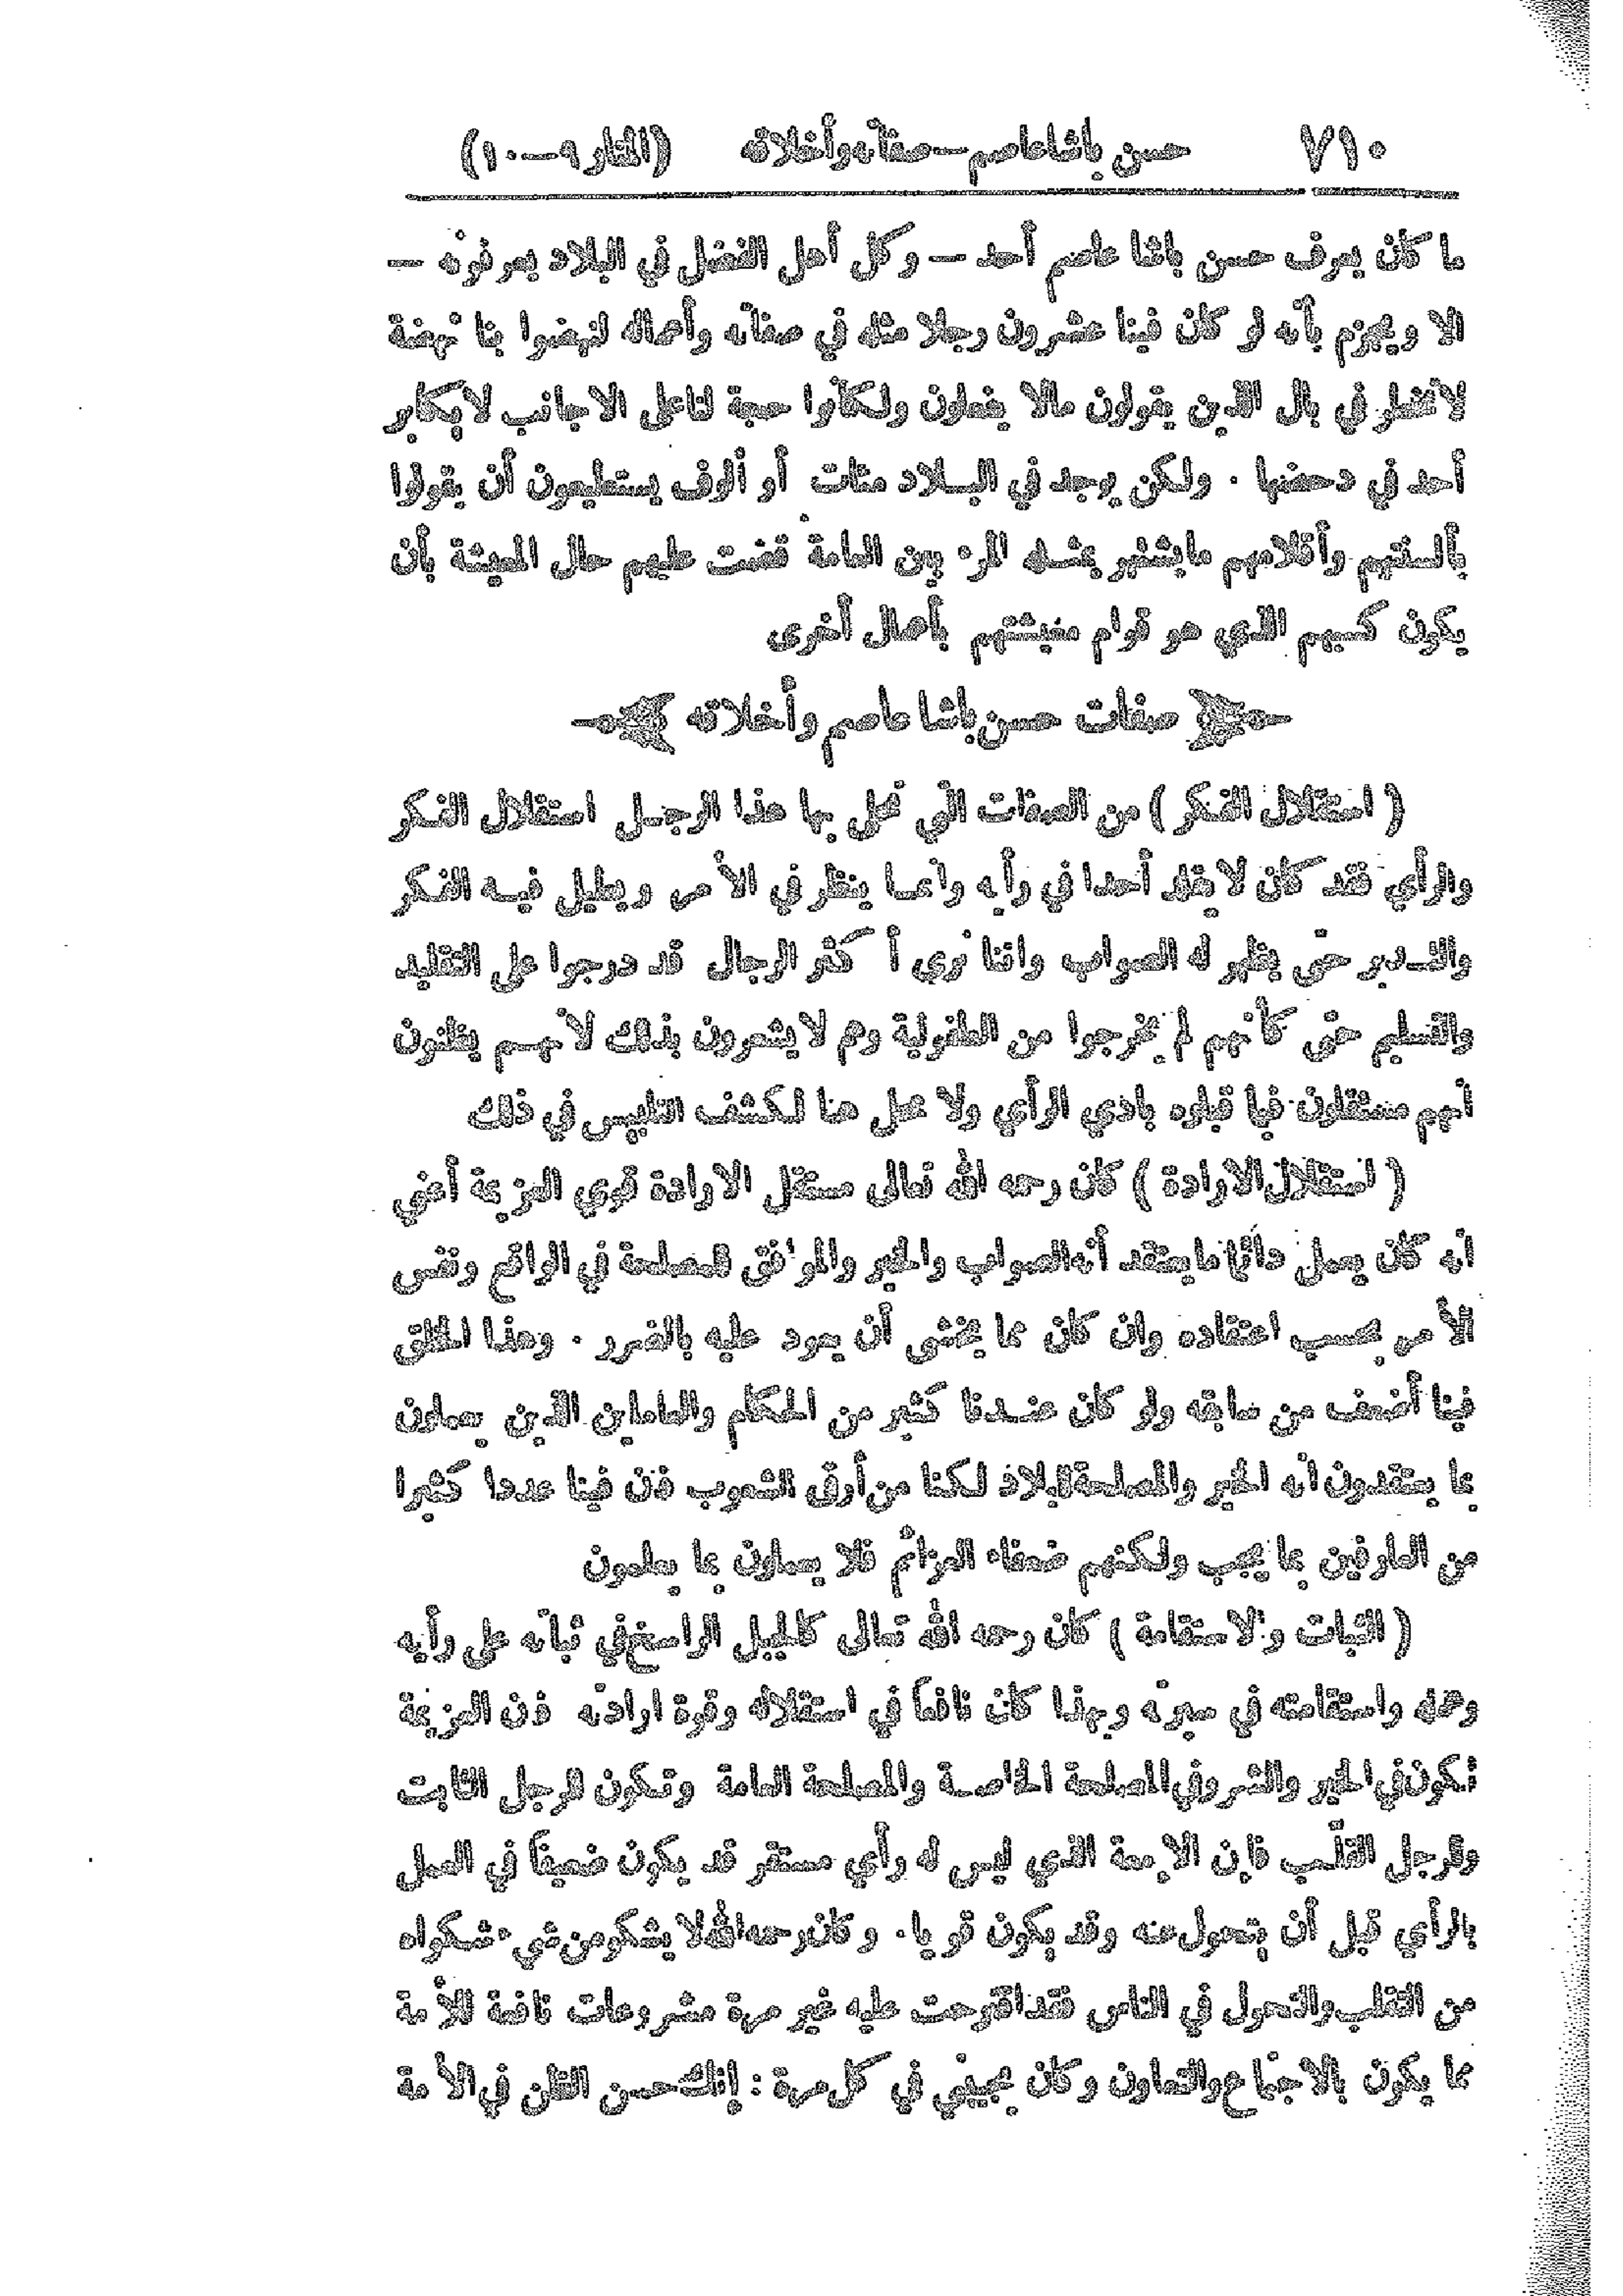 ٧١٠ حسن باشا عاصم — صفاته وأخلاقه (المنار ٩ — ١٠)
ما كان يعرف حسن باشا عاصم أحد — وكل أهل الفضل في البلاد يعرفونه —
الا ويجزم بأنه لو كان فينا عشرون رجلا مثله في صفاته وأعماله لنهضوا بنا نهضة
لا تخطر في بال الذين يقولون مالا يفعلون ولكانوا حجة لنا على الاجانب لا يكابر
أحد في دحضها . ولكن يوجد في البلاد مئات أو ألوف يستطيعون أن يقولوا
بألسنتهم وأقلامهم ما يشتهر بمثله المرء بين العامة قضت عليهم حال المعيشة بأن
يكون كسبهم الذي هو قوام معيشتهم بأعمال أخرى
صفات حسن باشا عاصم وأخلاقه
( استقلال الفكر ) من الصفات التي تحلى بها هذا الرجل استقلال الفكر
والرأي فقد كان لا يقلد أحدا في رأيه وانما ينظر في الأمر ويطيل فيه الفكر
والتدبر حتى يظهر له الصواب واننا نرى أكثر الرجال قد درجوا على التقليد
والتسليم حتى كأنهم لم يخرجوا من الطفولية وهم لا يشعرون بذلك لأنهم يظنون
أنهم مستقلون فيما قبلوه بادي الرأي ولا محل هنا لكشف التلبيس في ذلك
( استقلال الارادة ) كان رحمه الله تعالى مستقل الارادة قوي العزيمة أعني
انه كان يعمل دائما ما يعتقد أنه الصواب والخير والموافق للمصلحة في الواقع ونفس
الأمر بحسب اعتقاده وان كان مما يخشى أن يعود عليه بالضرر . وهذا الخلق
فينا أضعف من سابقه ولو كان عندنا كثير من الحكام والعاملين الذين يعملون
بما يعتقدون انه الخير والمصلحة للبلاد لكنا من أرقى الشعوب فان فينا عددا كثيرا
من العارفين بما يجب ولكنهم ضعفاء العزائم فلا يعملون بما يعلمون
( الثبات والاستقامة ) كان رحمه الله تعالى كالجبل الراسخ في ثباته على رأيه
وعمله واستقامته في سيرته وبهذا كان نافعاً في استقلاله وقوة ارادته فان العزيمة
تكون في الخير والشر وفي المصلحة الخاصة والمصلحة العامة وتكون للرجل الثابت
وللرجل القلّب فإن الإمعة الذي ليس له رأي مستقر قد يكون ضعيفاً في العمل
بالرأي قبل أن يتحول عنه وقد يكون قويا . وكان رحمه الله لا يشكو من شيء شكواه
من التقلب والتحول في الناس فقد اقترحت عليه غير مرة مشروعات نافعة للأمة
مما يكون بالاجتماع والتعاون وكان يجيبني في كل مرة : إنك حسن الظن في الأمة